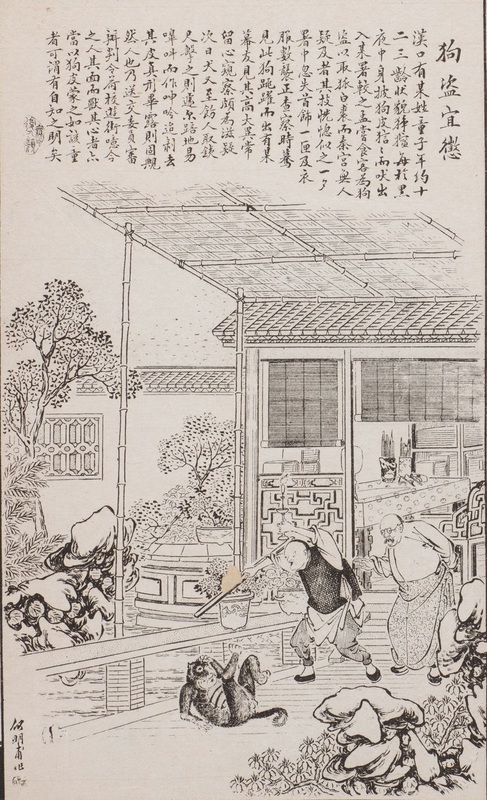 狗盜宜懲
漢口有某姓童子年約十
二三齡狀貌猙獰每於黑
夜中身披狗皮狺狺而吠出
入某署較之孟嘗食客為狗
盜以取狐白裘而秦宮無人
疑及者其技恍惚似之一夕
署中忽失首飾一匣及衣
服數襲正查察時驀
見此狗跳躍而出有某
幕友見其高大異常
留心窺察頗為滋疑
次日犬又至飭人取鉄
尺擊之則遽尔踣地易
嘷叫而作呻吟逼前去
其皮真形畢露則固覥
然人也乃送交委員審
辦判令荷校遊街噫今
之人其面而獸其心者亦
當以狗皮蒙之如該童
者可謂有自知之明矣
何明甫作